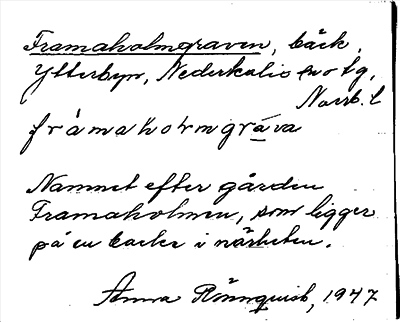 Framaholmgraven, bäck,
Ytterbyn, Nederkalix sn o tg,
Norrb. l
framahormgráva
Namnet efter gården
Framaholmen, som ligger
på en backe i närheten.
Anna Rönnquist, 1947